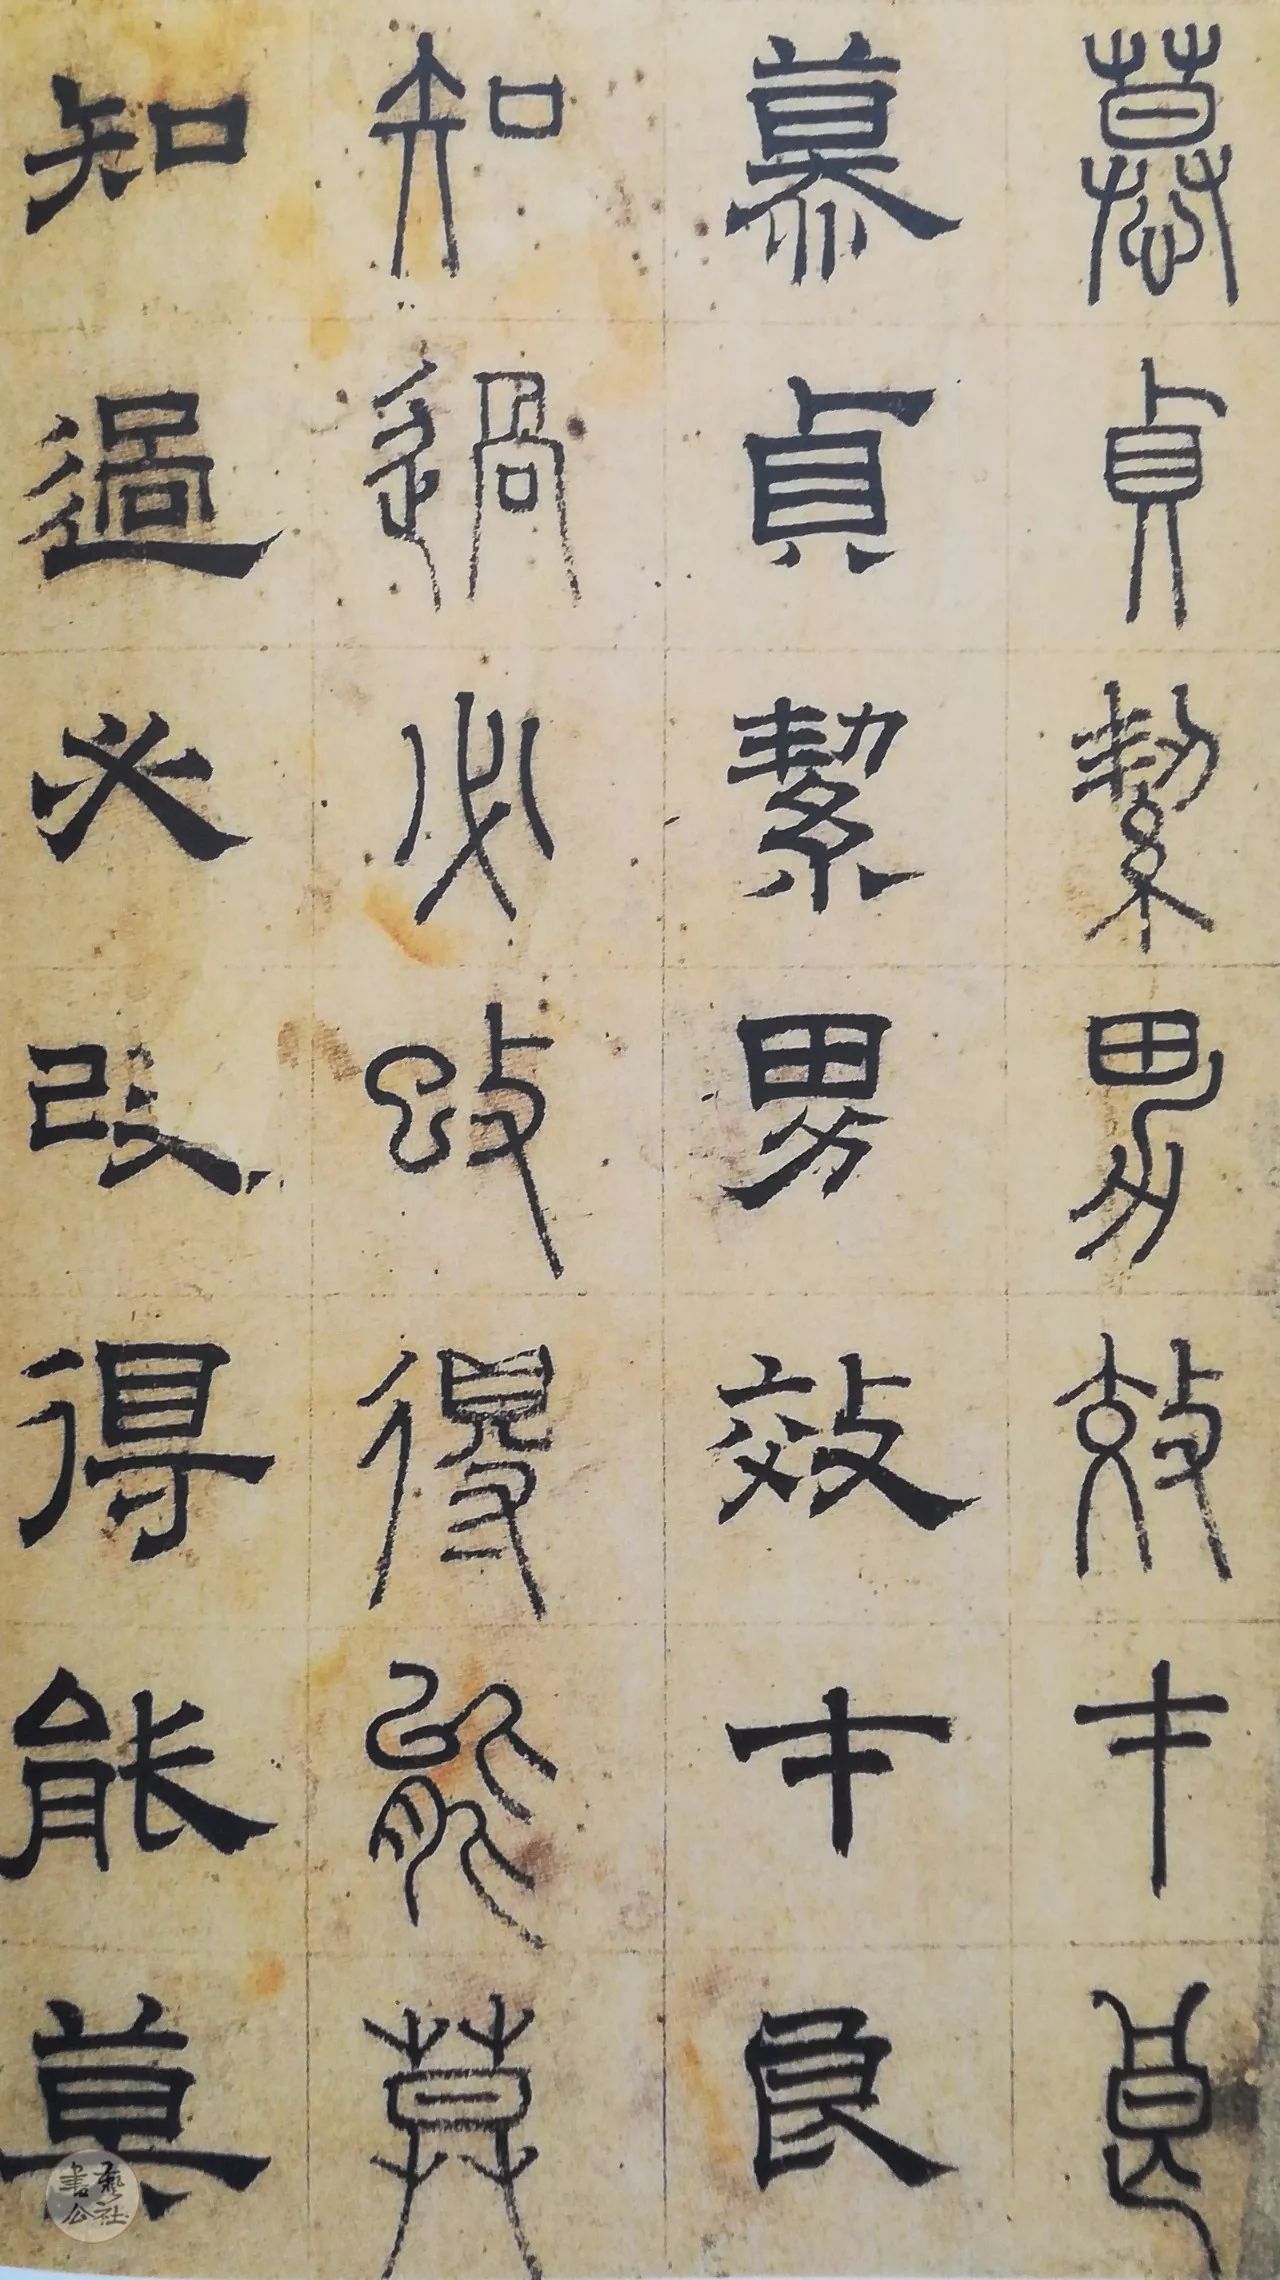 慕貞絜男效才良
慕貞絜男效才良
知過必改得能莫
知過必改得能莫
書藝公社